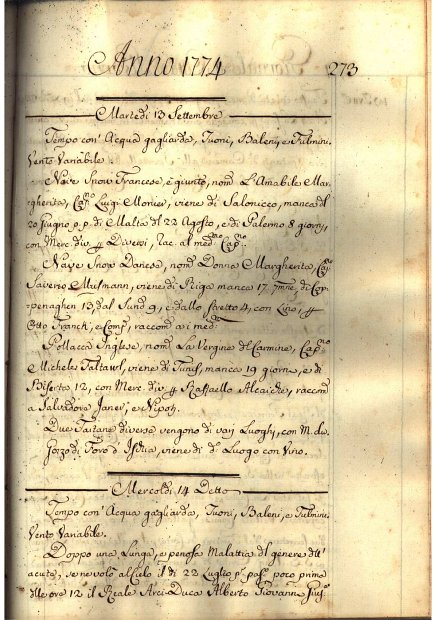 Anno 1774
273
Martedi 13 Settembre
Tempo con' Acqua gagliarda, Tuoni, Baleni, e Fulmini.
Vento Variabile.
Nave Snow Francese, è giunto, nom. L'Amabile Mar-
gherita, Cap.no Luigi Monier, viene di Salonicco, manca dal
20 Giugno p.p. di Malta dl 22 Agosto, e di Palermo 8 giorni,
con Merc. div. Diversi, rac. al med.mo Cap.no
Nave Snow Danese, nom. Donna Margherita, Cap.
Saverio viene di Riga manca 17. di Cop-
penaghen 13, dal Sund 9, e dallo stretto 4, con Lino,
Otto Franck, e Comp. raccom. ai med.
Pollacca Inglese, nom. La Vergine dl Carmine, Cap.no
Michele viene di Tunis, manca 19 giorni, e di
Biserta 12, con Merc. div. Raffaello raccom.
a Salvadore Janer, e Nipoti.
Due Tartane diverse vengono di varj Luoghi, con M. di.
Gorzo di Toro d' Ischia, viene di d.o Luogo con Vino.
Mercoldi 14 Detto
Tempo con' Acqua gagliarda, Tuoni, Baleni, e Fulmini.
Vento Variabile.
Doppo una Lunga, e penosa Malattia dl genere dll'
acute, se ne volò al Cielo il dì 22 Luglio p.o pas.o poco prima
dlle ore 12 il Reale Arci-Duca Alberto Giovanni Gius.